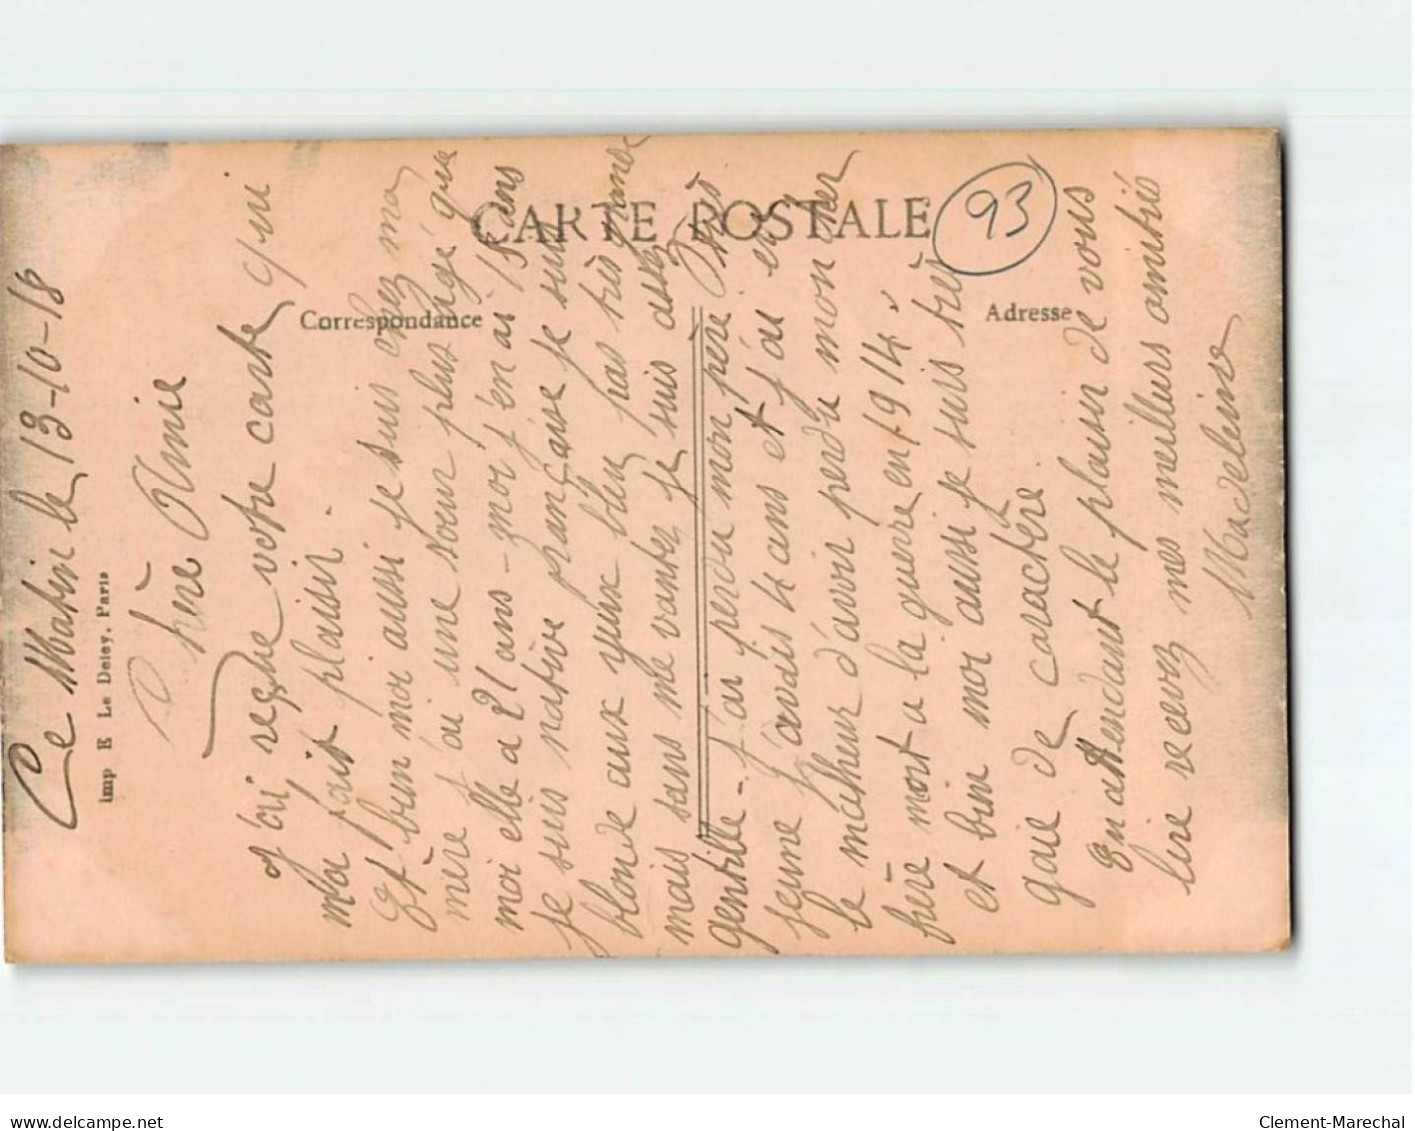 CARTE POSTALE
93
Correspondance
Adresse
Imp E Le Deley, Paris
Le Matin le 13-10-18
Chère Amie
J'ai reçue votre carte qui
ma fait plaisir.
Et bien moi aussi je suis chez ma
mère j'ai une sœur plus agé que
moi elle a 21 ans - moi j'en ai 18 ans
je suis native française je suis
blonde aux yeux bleu pas très grande
mais sans me vanter je suis assez
gentille - J'ai perdu mon père très
jeune j'avais 4 ans et j'ai eu
le malheur d'avoir perdu mon cher
frère mort a la guerre en 1914.
et bien moi aussi je suis très
gaie de caractère
En attendant le plaisir de vous
lire recevez mes meilleurs amitiés
Madeleine
www.delcampe.net
Clement-Marechal